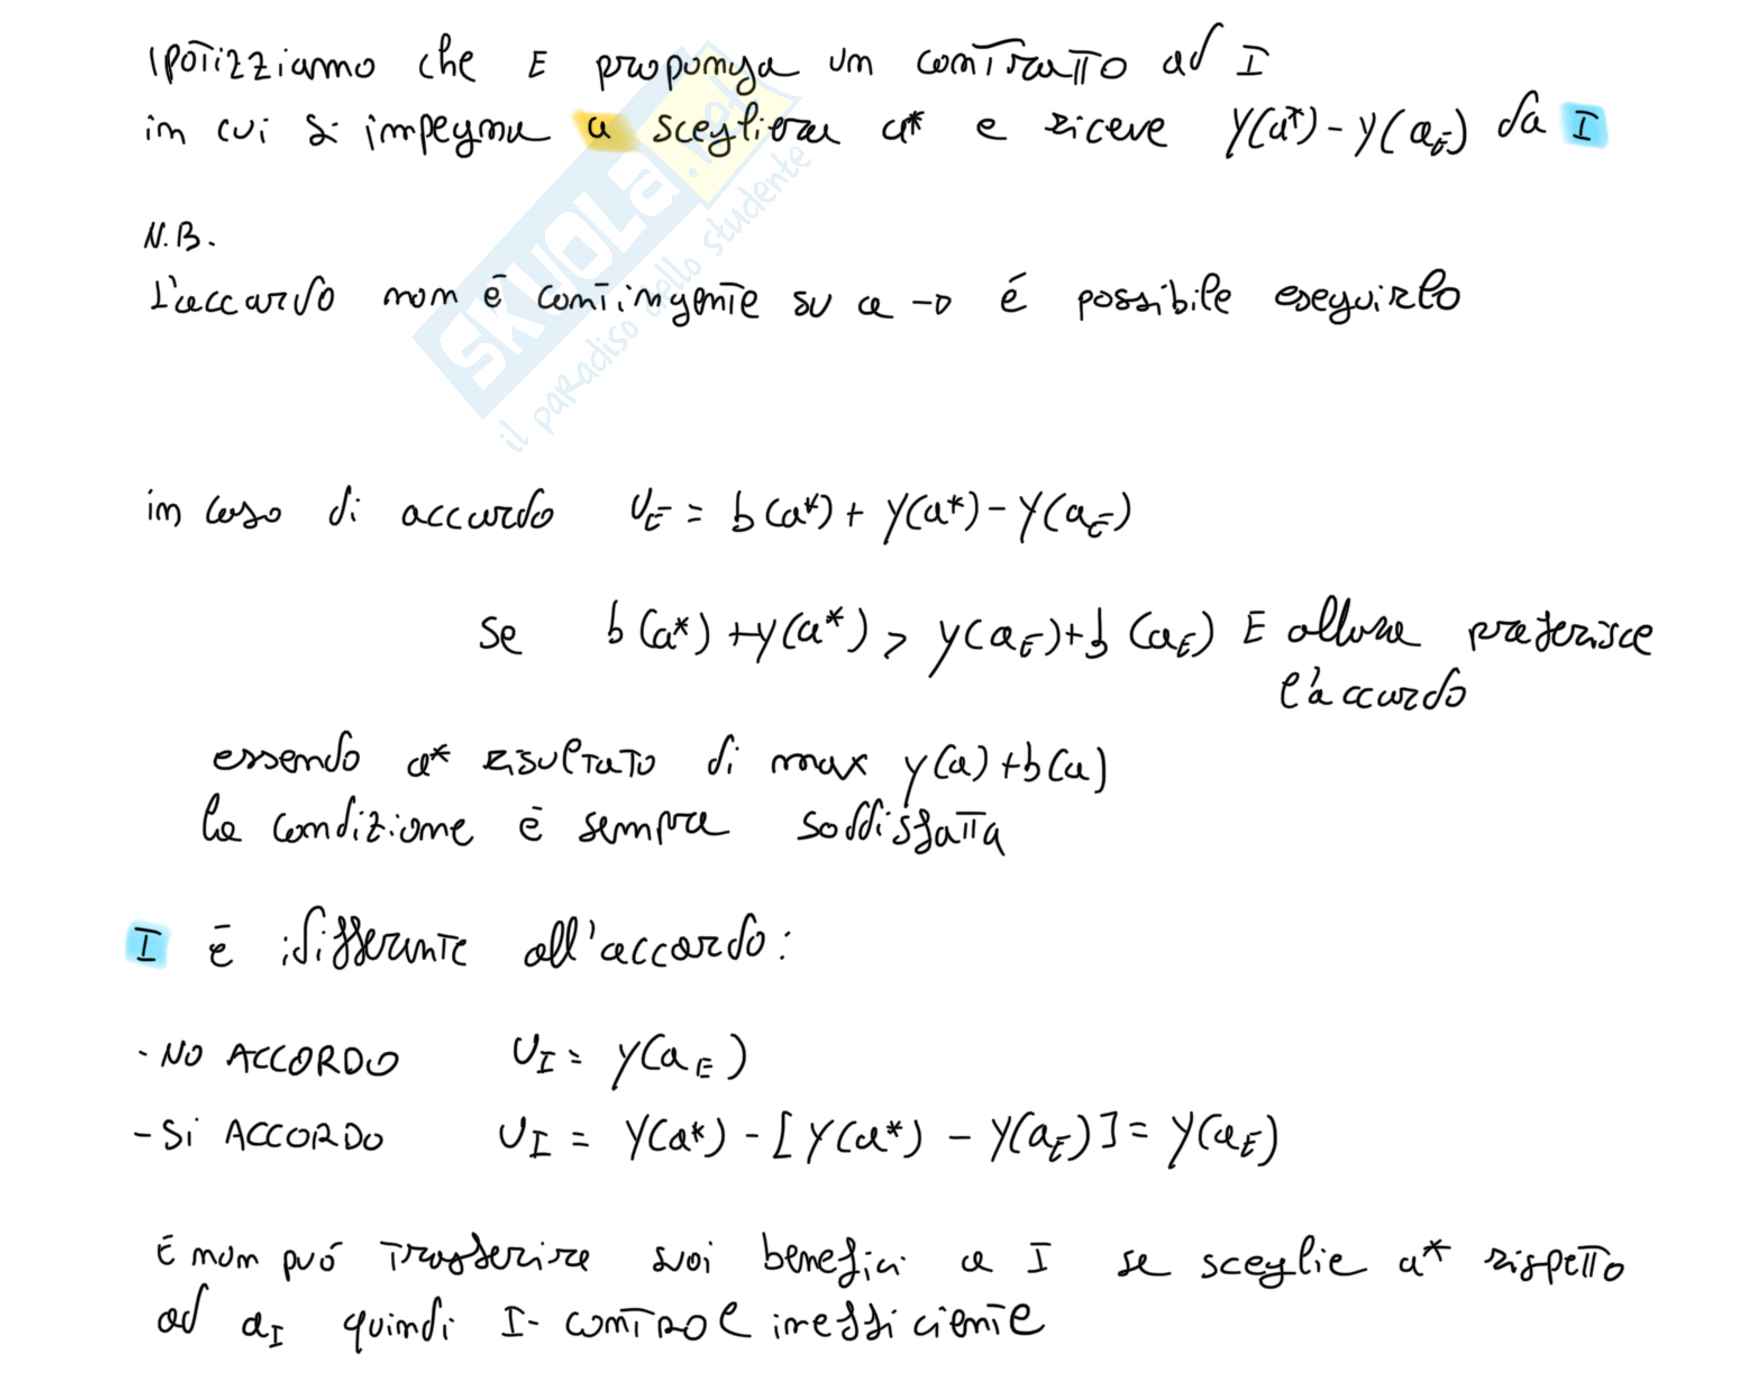 Ipotizziamo che E proponga un contratto ad I
in cui si impegna a scegliere a* e riceve y(a*) - y(aE) da I
N.B.
L'accordo non è contingente su a → è possibile eseguirlo
SKUOLA.net
il paradiso dello studente
in caso di accordo UE = b(a*) + y(a*) - y(aE)
se b(a*) + y(a*) > y(aE) + b(aE) E allora preferisce
l'accordo
essendo a* risultato di max y(a) + b(a)
la condizione è sempre soddisfatta
I è idifferente all'accordo:
- NO ACCORDO UI = y(aE)
- Si ACCORDO UI = y(a*) - [y(a*) - y(aE)] = y(aE)
E non può trasferire suoi benefici a I se sceglie a* rispetto
ad aI quindi I-control inefficiente